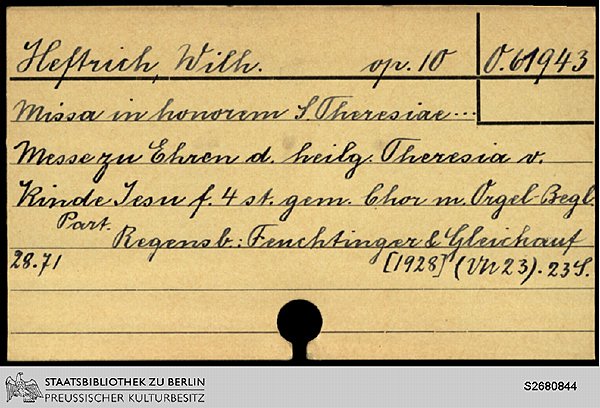 Heftrich, Wilh. op. 10 O.61943
Missa in honorem S. Theresiae ...
Messe zu Ehren d. heilg. Theresia v.
Kinde Jesu f. 4 st. gem. Chor m. Orgel-Begl.
Part. Regensb.: Feuchtinger & Gleichauf
28.71 [1928] (VN 23). 23 S.
STAATSBIBLIOTHEK ZU BERLIN
PREUSSISCHER KULTURBESITZ
S2680844